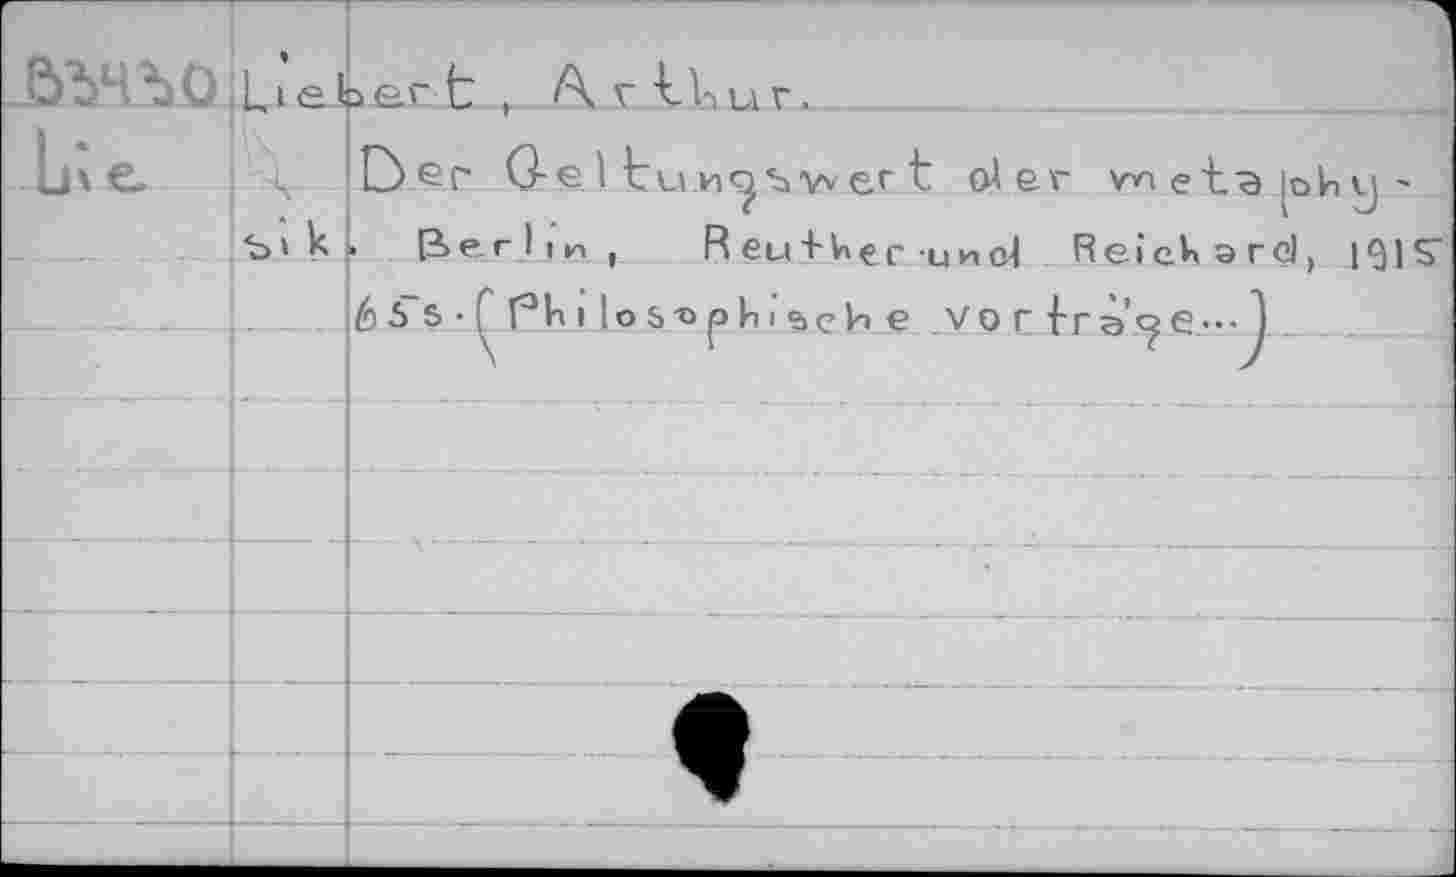 83430 Liebert, Arthur.
Lie Der Geltungswert der metaphy-
sik. Berlin, Reuther und Reichard, 1915
65s. (Philosophische vorträge...)